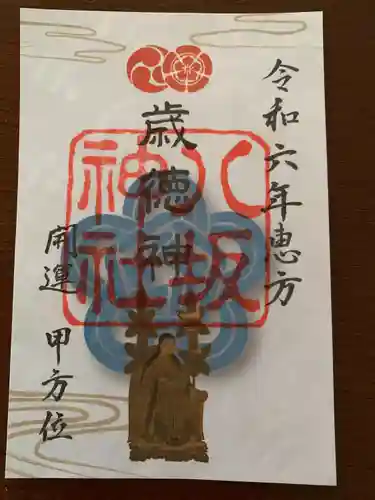 令和六年恵方
歳徳神
八坂
神社
開運 甲方位